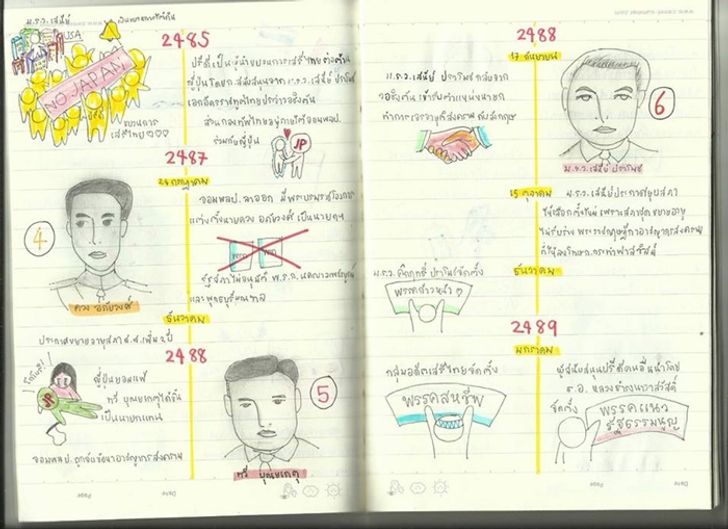 ม.ร.ว.เสนีย์
USA
NO JAPAN
ปรีดี
ขบวนการ
เสรีไทย
2485
ปรีดีเป็นผู้นำขบวนการเสรีไทยต่อต้าน
ญี่ปุ่นโดยการสนับสนุนจาก ม.ร.ว.เสนีย์ ปราโมช
เอกอัครราชทูตไทยประจำวอชิงตัน
ร่วมกับญี่ปุ่น
JP
2487
24 กรกฎาคม
จอมพลป.ลาออก มีพระบรมราชโองการ
แต่งตั้งนายควง อภัยวงศ์ เป็นนายกฯ
4
ควง อภัยวงศ์
รัฐสภาไม่อนุมัติ พ.ร.ก. นครบาลเพชรบูรณ์
และพุทธบุรีมณฑล
ธันวาคม
ประกาศขยายอายุสภา ส.ส.เพิ่ม 2 ปี
2488
JP
ญี่ปุ่นยอมแพ้
ทวี บุณยเกตุได้ขึ้น
เป็นนายกแทน
5
ทวี บุณยเกตุ
จอมพลป. ถูกแจ้งข้อหาอาชญากรสงคราม
2488
17 กันยายน
ม.ร.ว.เสนีย์ ปราโมช กลับจาก
วอชิงตัน เข้ารับตำแหน่งนายก
ทำการเจรจายุติสงครามกับอังกฤษ
6
ม.ร.ว.เสนีย์ ปราโมช
15 ตุลาคม
ม.ร.ว.เสนีย์ประกาศยุบสภา
ให้เลือกตั้งใหม่ เพราะสภาชุดขยายอายุ
ธันวาคม
ม.ร.ว. คึกฤทธิ์ ปราโมชจัดตั้ง
พรรคก้าวหน้า
2489
มกราคม
กลุ่มอดีตเสรีไทยจัดตั้ง
พรรคสหชีพ
ผู้สนับสนุนปรีดีคนอื่นนำโดย
ร.อ. หลวงธำรงนาวาสวัสดิ์
จัดตั้ง
พรรคแนว
รัฐธรรมนูญ
Date
Page
Date
Page